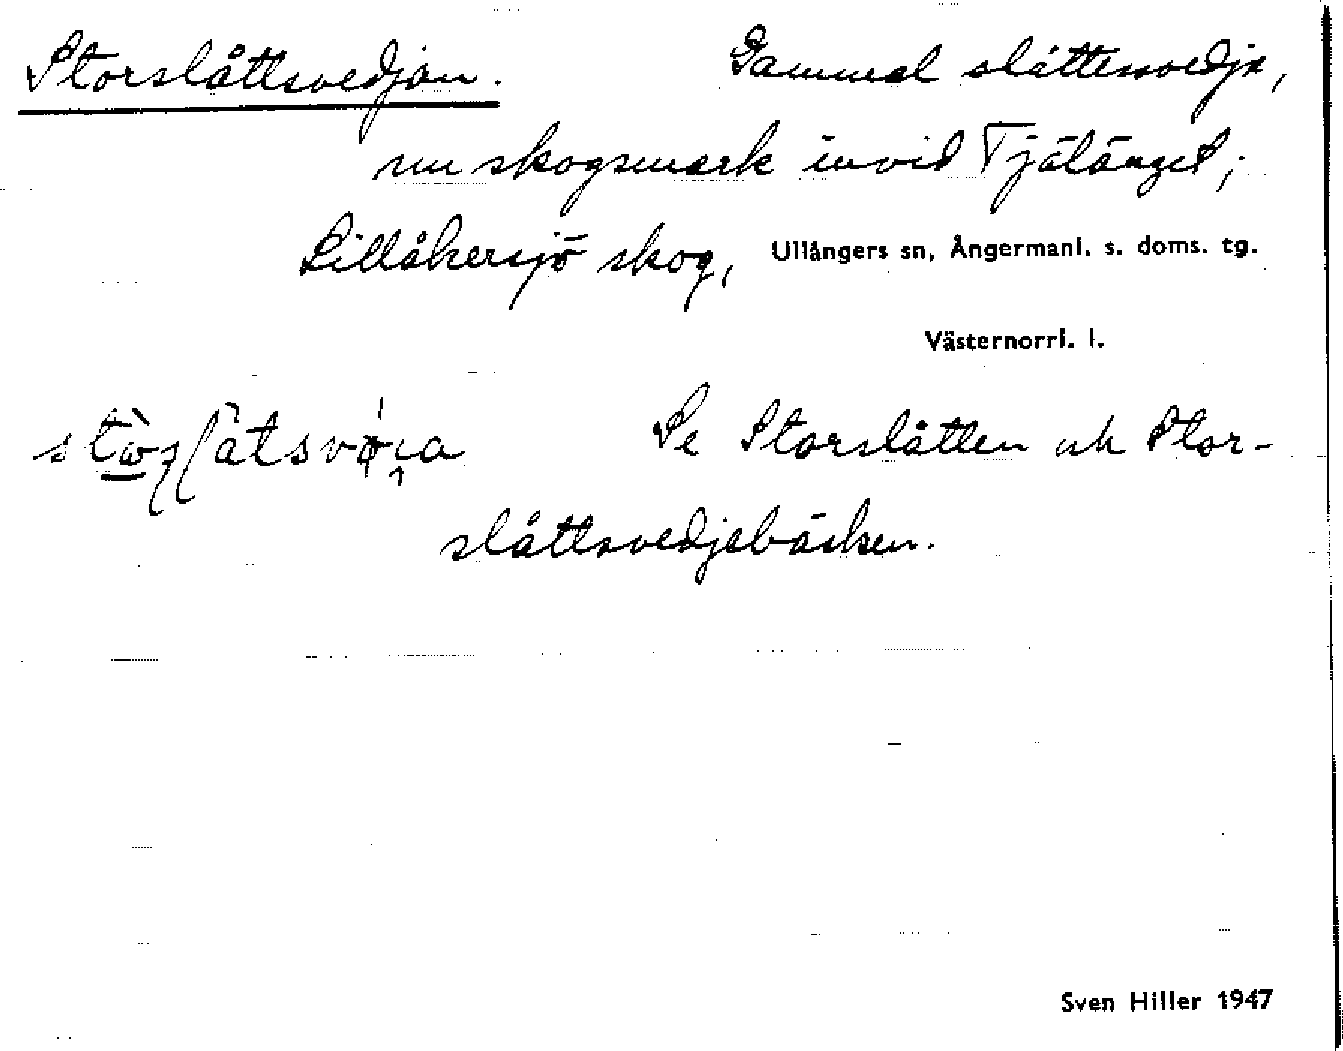 Storslåttsvedjan. Gammal slåttesvedja,
nu skogsmark invid Tjälänget;
Lillåkersjö skog, Ullångers sn, Ångermanl. s. doms. tg.
Västernorrl. l.
Se Storslåtten och Stor-
slåttsvedjebäcken.
Sven Hiller 1947